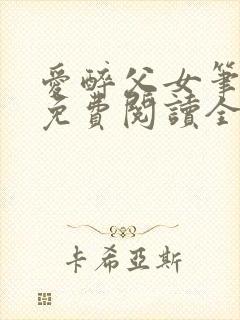 愛醉父女筆
免費閱讀全
卡希亞斯